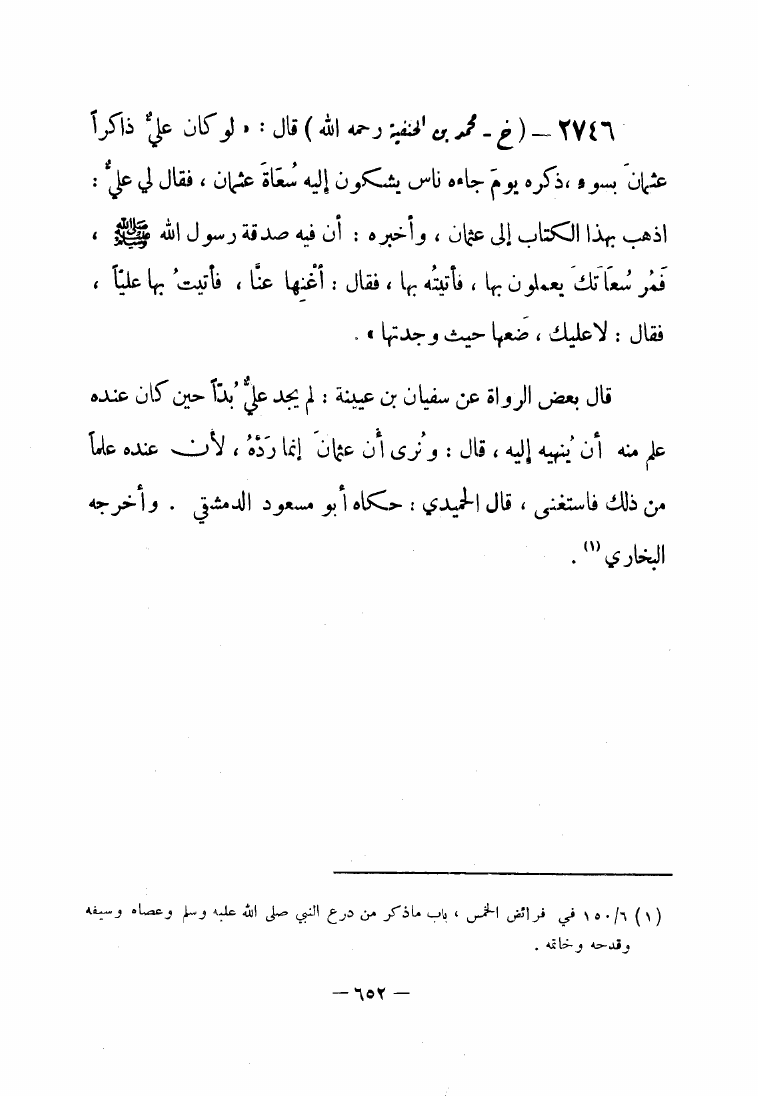 ٢٧٤٦ – (خ - محمد بن الحنفية رحمه الله) قال : « لو كان عليٌّ ذاكراً
عثمانَ بسوء ،ذكره يومَ جاءه ناس يشكون إليه سُعَاةَ عثمان ، فقال لي عليٌّ :
اذهب بهذا الكتاب إلى عثمان ، وأخبره : أن فيه صدقة رسول الله ﷺ ،
فَمُر سُعَاتَكَ يعملون بها ، فأتيتُه بها ، فقال : أَغْنِها عنَّا ، فأتيتُ بها عليّاً ،
فقال : لاعليك ، ضَعها حيث وجدتها » .
قال بعض الرواة عن سفيان بن عيينة : لم يجد عليٌّ بُدّاً حين كان عنده
علم منه أن يُنهيه إليه ، قال : ونُرى أن عثمانَ إنما رَدَّهُ ، لأن عنده علماً
من ذلك فاستغنى ، قال الحميدي : حكاه أبو مسعود الدمشقي . وأخرجه
البخاري (١) .
(١) ١٥٠/٦ في فرائض الخمس ، باب ماذكر من درع النبي صلى الله عليه وسلم وعصاه وسيفه
وقدحه وخاتمه .
– ٦٥٢ –